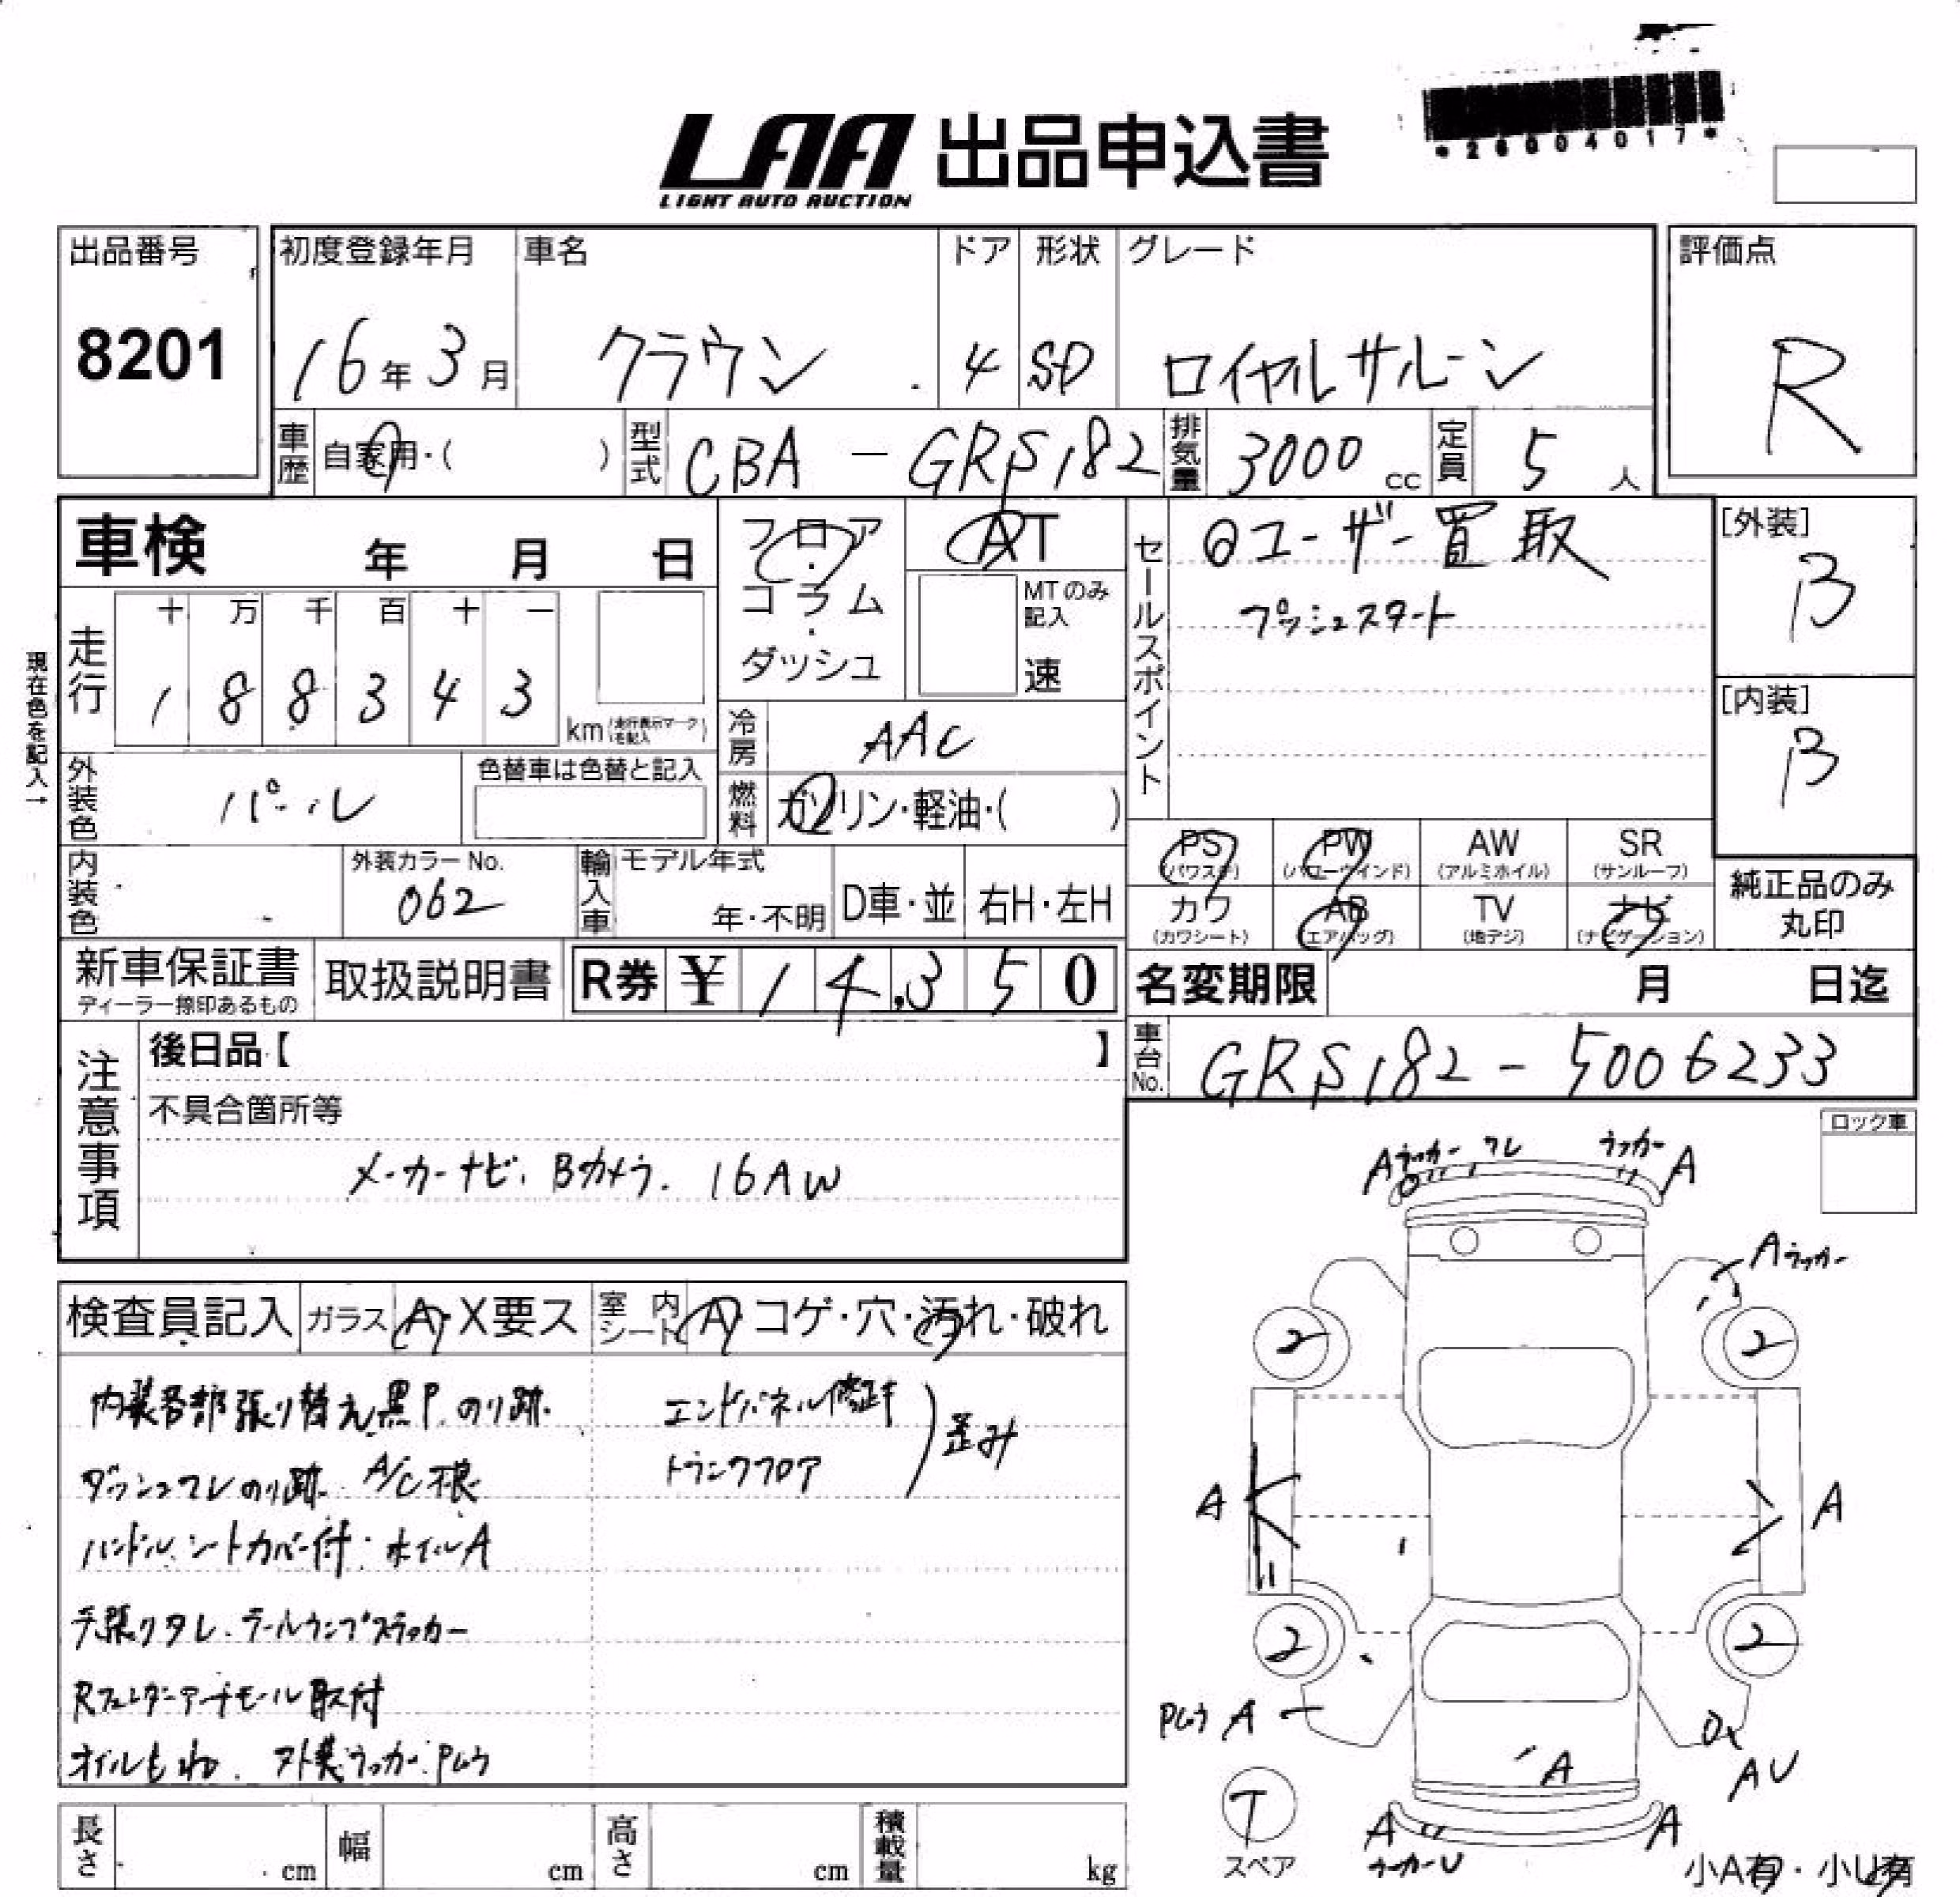 LAA 出品申込書
LIGHT AUTO AUCTION
*26004017*
出品番号
8201
初度登録年月
16年3月
車名
クラウン
ドア
4
形状
SD
グレード
ロイヤルサルーン
評価点
R
車歴
自家用・( )
型式
CBA - GRS182
排気量
3000 cc
定員
5 人
車検 年 月 日
フロア・コラム・ダッシュ
AT
MTのみ記入
速
セールスポイント
◎ユーザー買取
プッシュスタート
[外装]
B
[内装]
B
現在色を記入→
走行
十 万 千 百 十 一
1 8 8 3 4 3
km(走行表示マークを記入)
冷房
AAC
外装色
パール
色替車は色替と記入
燃料
ガソリン・軽油・( )
PS (パワステ)
PW (パワーウインド)
AW (アルミホイル)
SR (サンルーフ)
カワ (カワシート)
AB (エアバッグ)
TV (地デジ)
ナビ (ナビゲーション)
純正品のみ丸印
内装色
外装カラーNo.
062
輸入車
モデル年式
年・不明
D車・並
右H・左H
新車保証書
ディーラー捺印あるもの
取扱説明書
R券 ¥ 14,350
名変期限 月 日迄
車台No.
GRS182 - 5006233
注意事項
後日品【 】
不具合箇所等
メーカーナビ、Bカメラ. 16AW
ロック車
検査員記入
ガラス A・X要ス
室内シート A・コゲ・穴・汚れ・破れ
内装各部張り替え黒P. のり跡.
ダッシュワレのり跡. A/C様
ハンドル、シートカバー付. ホイルA
天張りタレ. テールランプステッカー
Rフェンダーアーチモール取付
オイルもれ. 外装ラッカー. Pムラ
エンドパネル修正キ
トランクフロア
歪み
A ラッカー ワレ
ラッカー A
A ラッカー
2
2
A
A
2
2
Pムラ A
A
AU
T
スペア
A
A
ラッカーU
小A有・小U有
長さ cm
幅 cm
高さ cm
積載量 kg